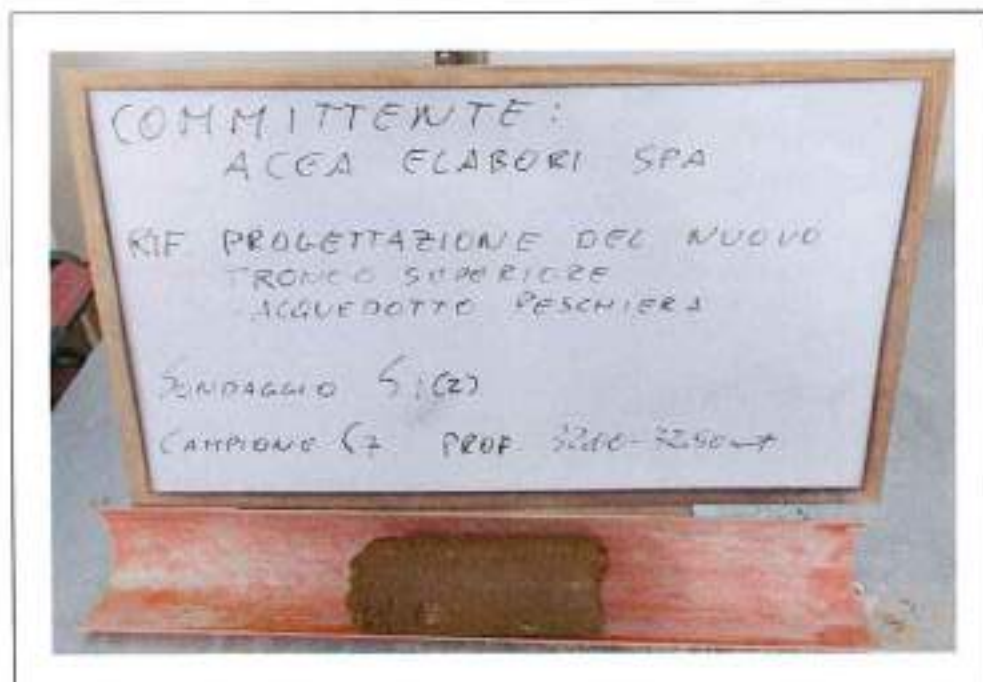 COMMITTENTE:
ACEA ELABORI SPA
RIF PROGETTAZIONE DEL NUOVO
TRONCO SUPERIORE
ACQUEDOTTO PESCHIERA
SONDAGGIO S1(2)
CAMPIONE C7 PROF.